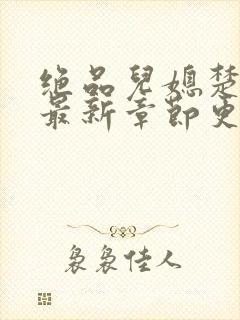 绝品儿媳楚
最新章节更
袅袅佳人